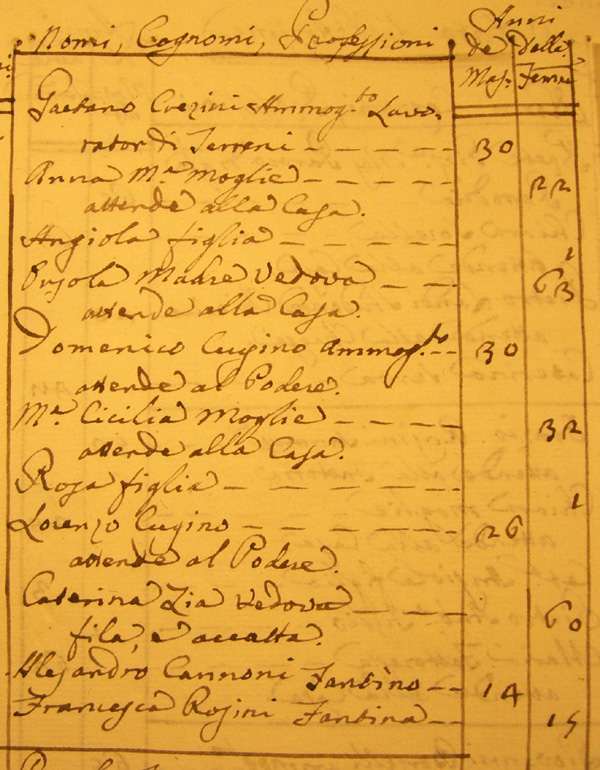 Nomi, Cognomi, Professioni
Anni
de delle
Mas. Femi
Gaetano Crezini Ammog.to Lavo-
rator di Terreni 30
Anna M.a Moglie 22
attende alla Casa.
Angiola figlia 1
Orsola Madre Vedova 63
attende alla Casa.
Domenico Cugino Ammog.to 30
attende al Podere.
M.a Cicilia Moglie 32
attende alla Casa.
Rosa figlia 1
Lorenzo Cugino 26
attende al Podere.
Caterina Zia Vedova 60
fila, e accatta.
Alesandro Cannoni Fantino 14
Francesca Rosini Fantina 15